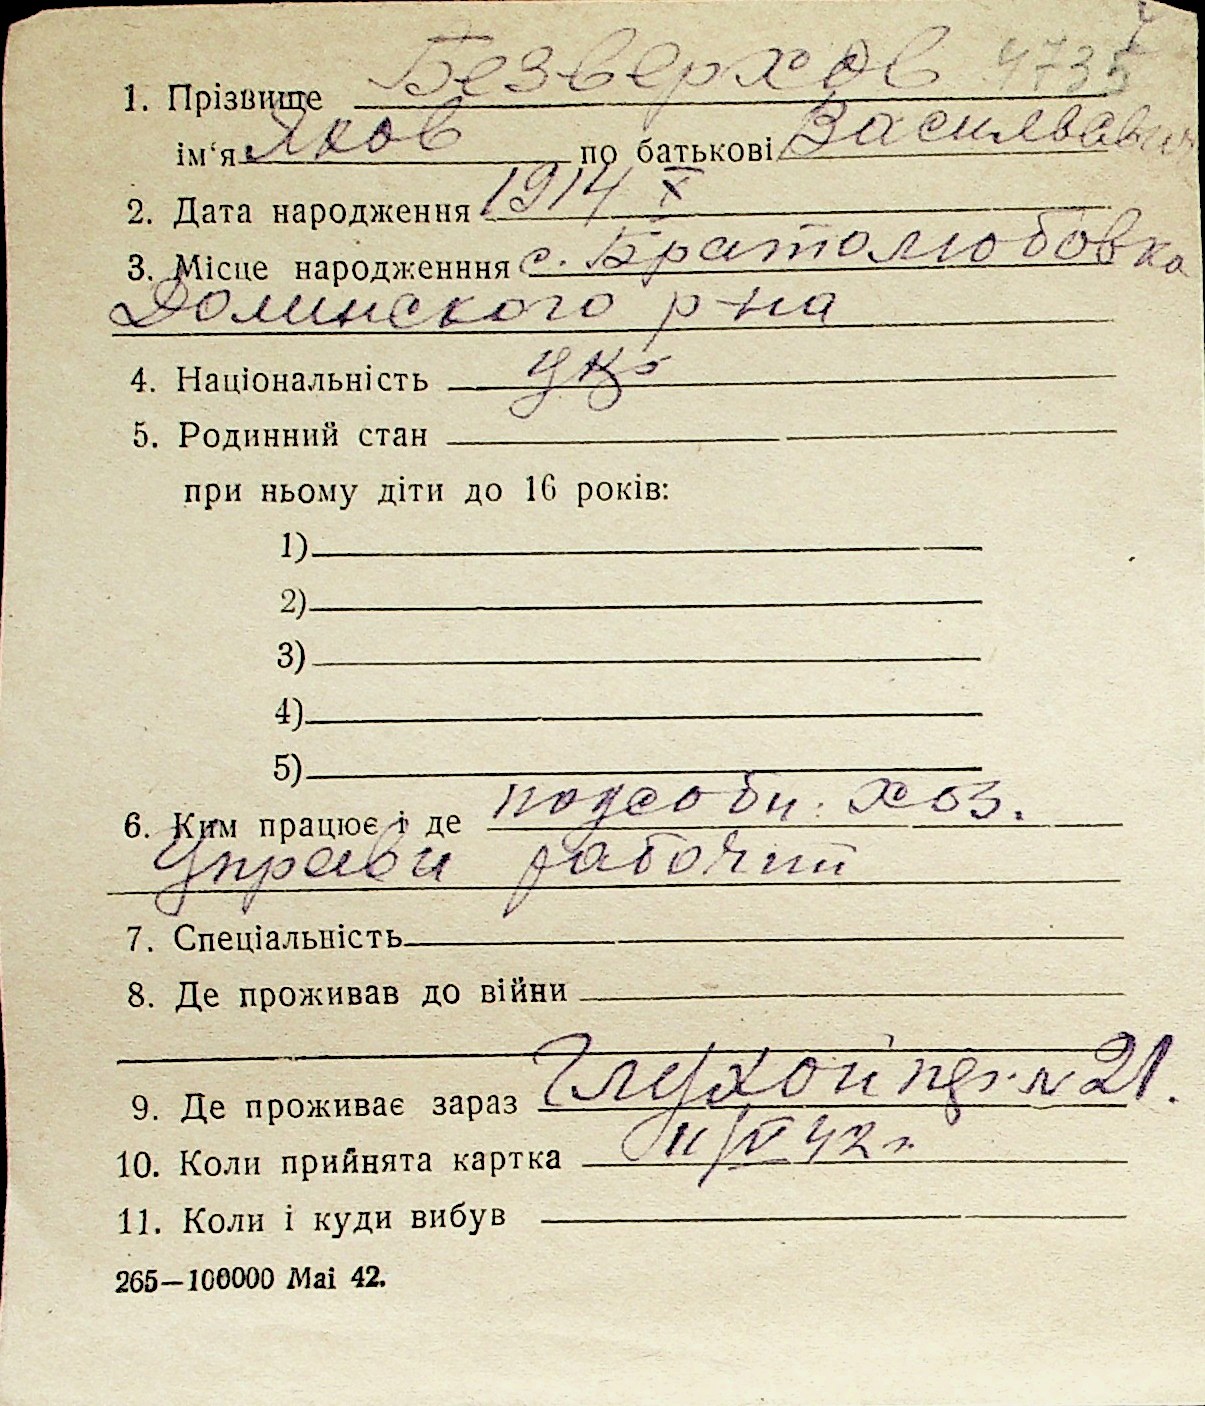 1. Прізвище Безверхов 4735
ім'я Яков по батькові Васильевич
2. Дата народження 1914 X
3. Місце народженння с. Братолюбовка
Долинского р-на
4. Національність укр
5. Родинний стан
при ньому діти до 16 років:
1)
2)
3)
4)
5)
6. Ким працює і де подсобн. хоз.
Управи рабочий
7. Спеціальність
8. Де проживав до війни
9. Де проживає зараз Глухой пер. № 21.
10. Коли прийнята картка 42 г
11. Коли і куди вибув
265—100000 Mai 42.